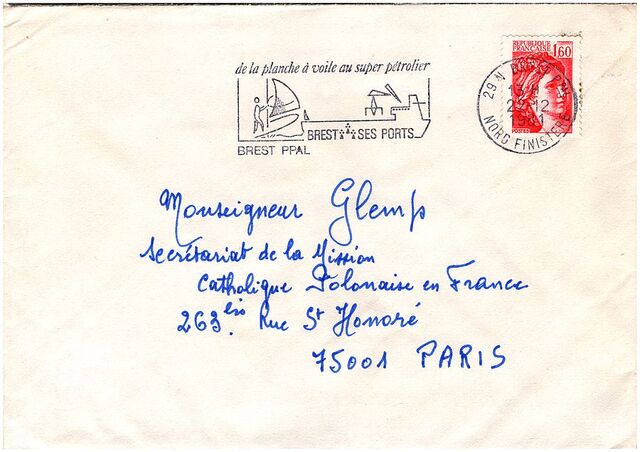 de la planche à voile au super pétrolier
BREST SES PORTS
BREST PPAL
REPUBLIQUE
FRANÇAISE
1,60
POSTES
29 N BREST PPAL
13 H
22-12
1981
NORD FINISTERE
Monseigneur Glemp
Secrétariat de la Mission
Catholique Polonaise en France
263 bis Rue St Honoré
75001 PARIS